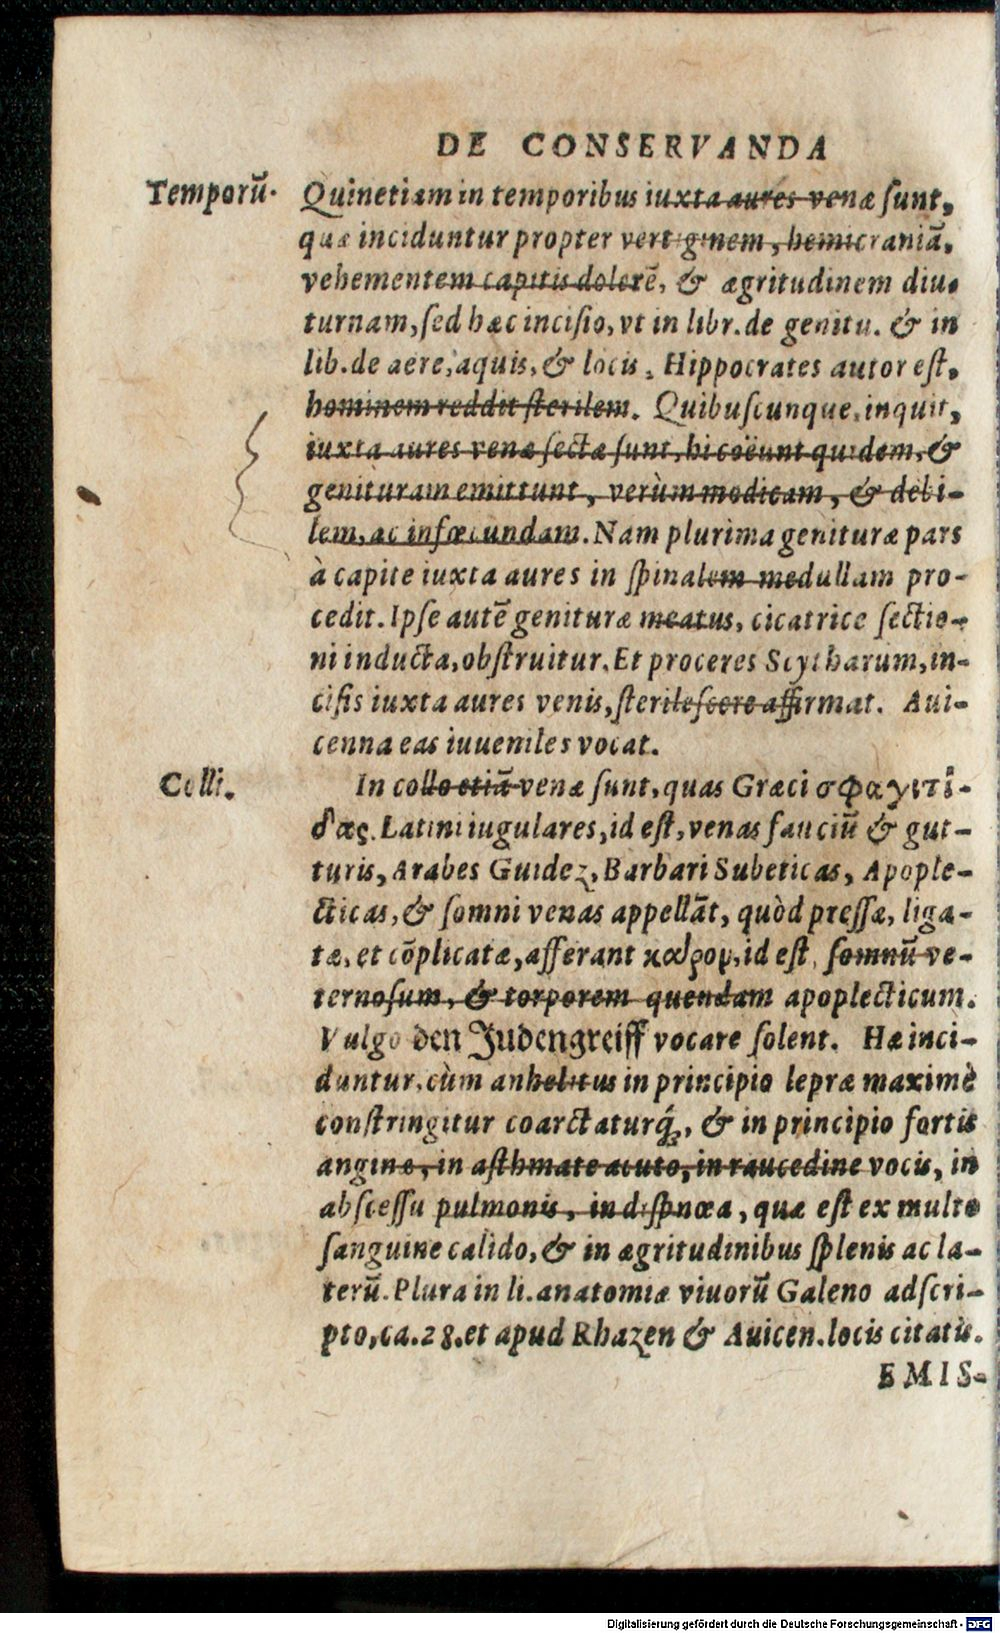 DE CONSERVANDA
Temporū. Quinetiam in temporibus iuxta aures venæ sunt,
quæ inciduntur propter vertiginem, hemicraniā,
vehementem capitis dolorē, & ægritudinem diu-
turnam, sed hæc incisio, vt in libr. de genitu. & in
lib. de aere, aquis, & locis, Hippocrates autor est,
hominem reddit sterilem. Quibuscunque, inquit,
iuxta aures venæ sectæ sunt, hi coëunt quidem, &
genituram emittunt, verùm modicam, & debi-
lem, ac infœcundam. Nam plurima genituræ pars
à capite iuxta aures in spinalem medullam pro-
cedit. Ipse autē genituræ meatus, cicatrice sectio-
ni inducta, obstruitur. Et proceres Scytharum, in-
cisis iuxta aures venis, sterilescere affirmat. Aui-
cenna eas iuueniles vocat.
Colli. In collo etiā venæ sunt, quas Græci σφαγιτί-
δας. Latini iugulares, id est, venas fauciū & gut-
turis, Arabes Guidez, Barbari Subeticas, Apople-
cticas, & somni venas appellāt, quòd pressæ, liga-
tæ, et cōplicatæ, afferant κάρον, id est, somnū ve-
ternosum, & torporem quendam apoplecticum.
Vulgo den Judengreiff vocare solent. Hæ inci-
duntur, cùm anhelitus in principio lepræ maximè
constringitur coarctaturq́;, & in principio fortis
anginæ, in asthmate acuto, in raucedine vocis, in
abscessu pulmonis, in dispnœa, quæ est ex multo
sanguine calido, & in ægritudinibus splenis ac la-
terū. Plura in li. anatomiæ viuorū Galeno adscri-
pto, ca. 28. et apud Rhazen & Auicen. locis citatis.
EMIS-
Digitalisierung gefördert durch die Deutsche Forschungsgemeinschaft - DFG